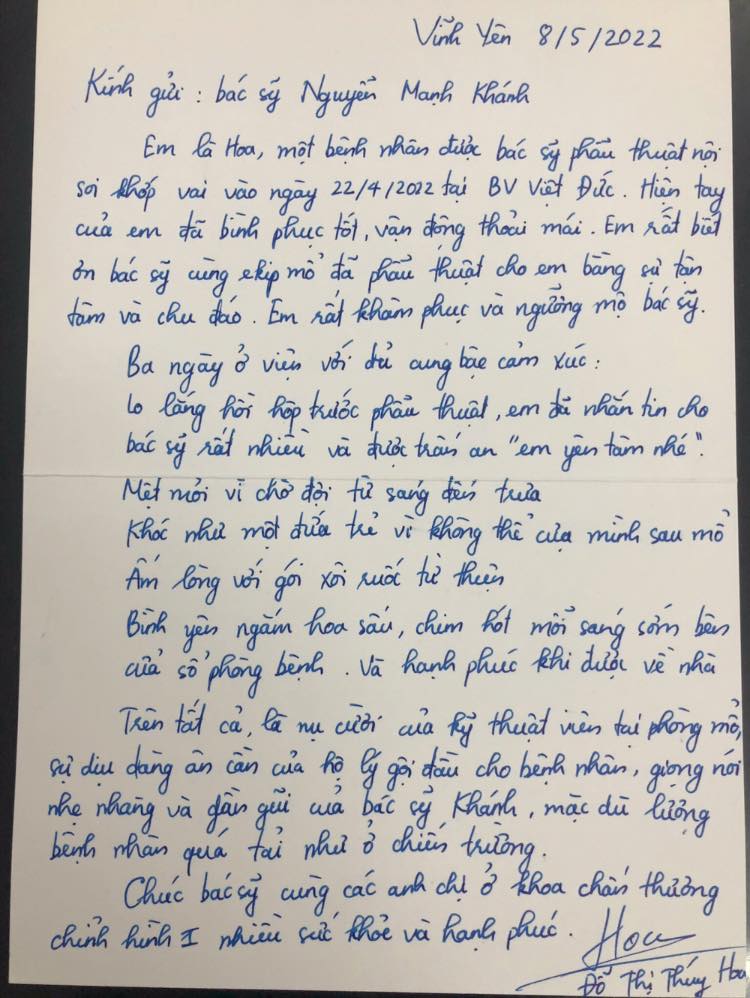 Vĩnh Yên 8/5/2022
Kính gửi : bác sỹ Nguyễn Mạnh Khánh
Em là Hoa, một bệnh nhân được bác sỹ phẫu thuật nội
soi khớp vai vào ngày 22/4/2022 tại BV Việt Đức. Hiện tay
của em đã bình phục tốt, vận động thoải mái. Em rất biết
ơn bác sỹ cùng ekip mổ đã phẫu thuật cho em bằng sự tận
tâm và chu đáo. Em rất khâm phục và ngưỡng mộ bác sỹ.
Ba ngày ở viện với đủ cung bậc cảm xúc :
Lo lắng hồi hộp trước phẫu thuật, em đã nhắn tin cho
bác sỹ rất nhiều và được trấn an "em yên tâm nhé".
Mệt mỏi vì chờ đợi từ sáng đến trưa
Khóc như một đứa trẻ vì không thể của mình sau mổ
Ấm lòng với gói xôi ruốc từ thiện
Bình yên ngắm hoa sấu, chim hót mỗi sáng sớm bên
cửa sổ phòng bệnh. Và hạnh phúc khi được về nhà
Trên tất cả, là nụ cười của kỹ thuật viên tại phòng mổ,
sự dịu dàng ân cần của hộ lý gội đầu cho bệnh nhân, giọng nói
nhẹ nhàng và gần gũi của bác sỹ Khánh, mặc dù lượng
bệnh nhân quá tải như ở chiến trường.
Chúc bác sỹ cùng các anh chị ở khoa chấn thương
chỉnh hình I nhiều sức khỏe và hạnh phúc.
Hoa
Đỗ Thị Thúy Hoa